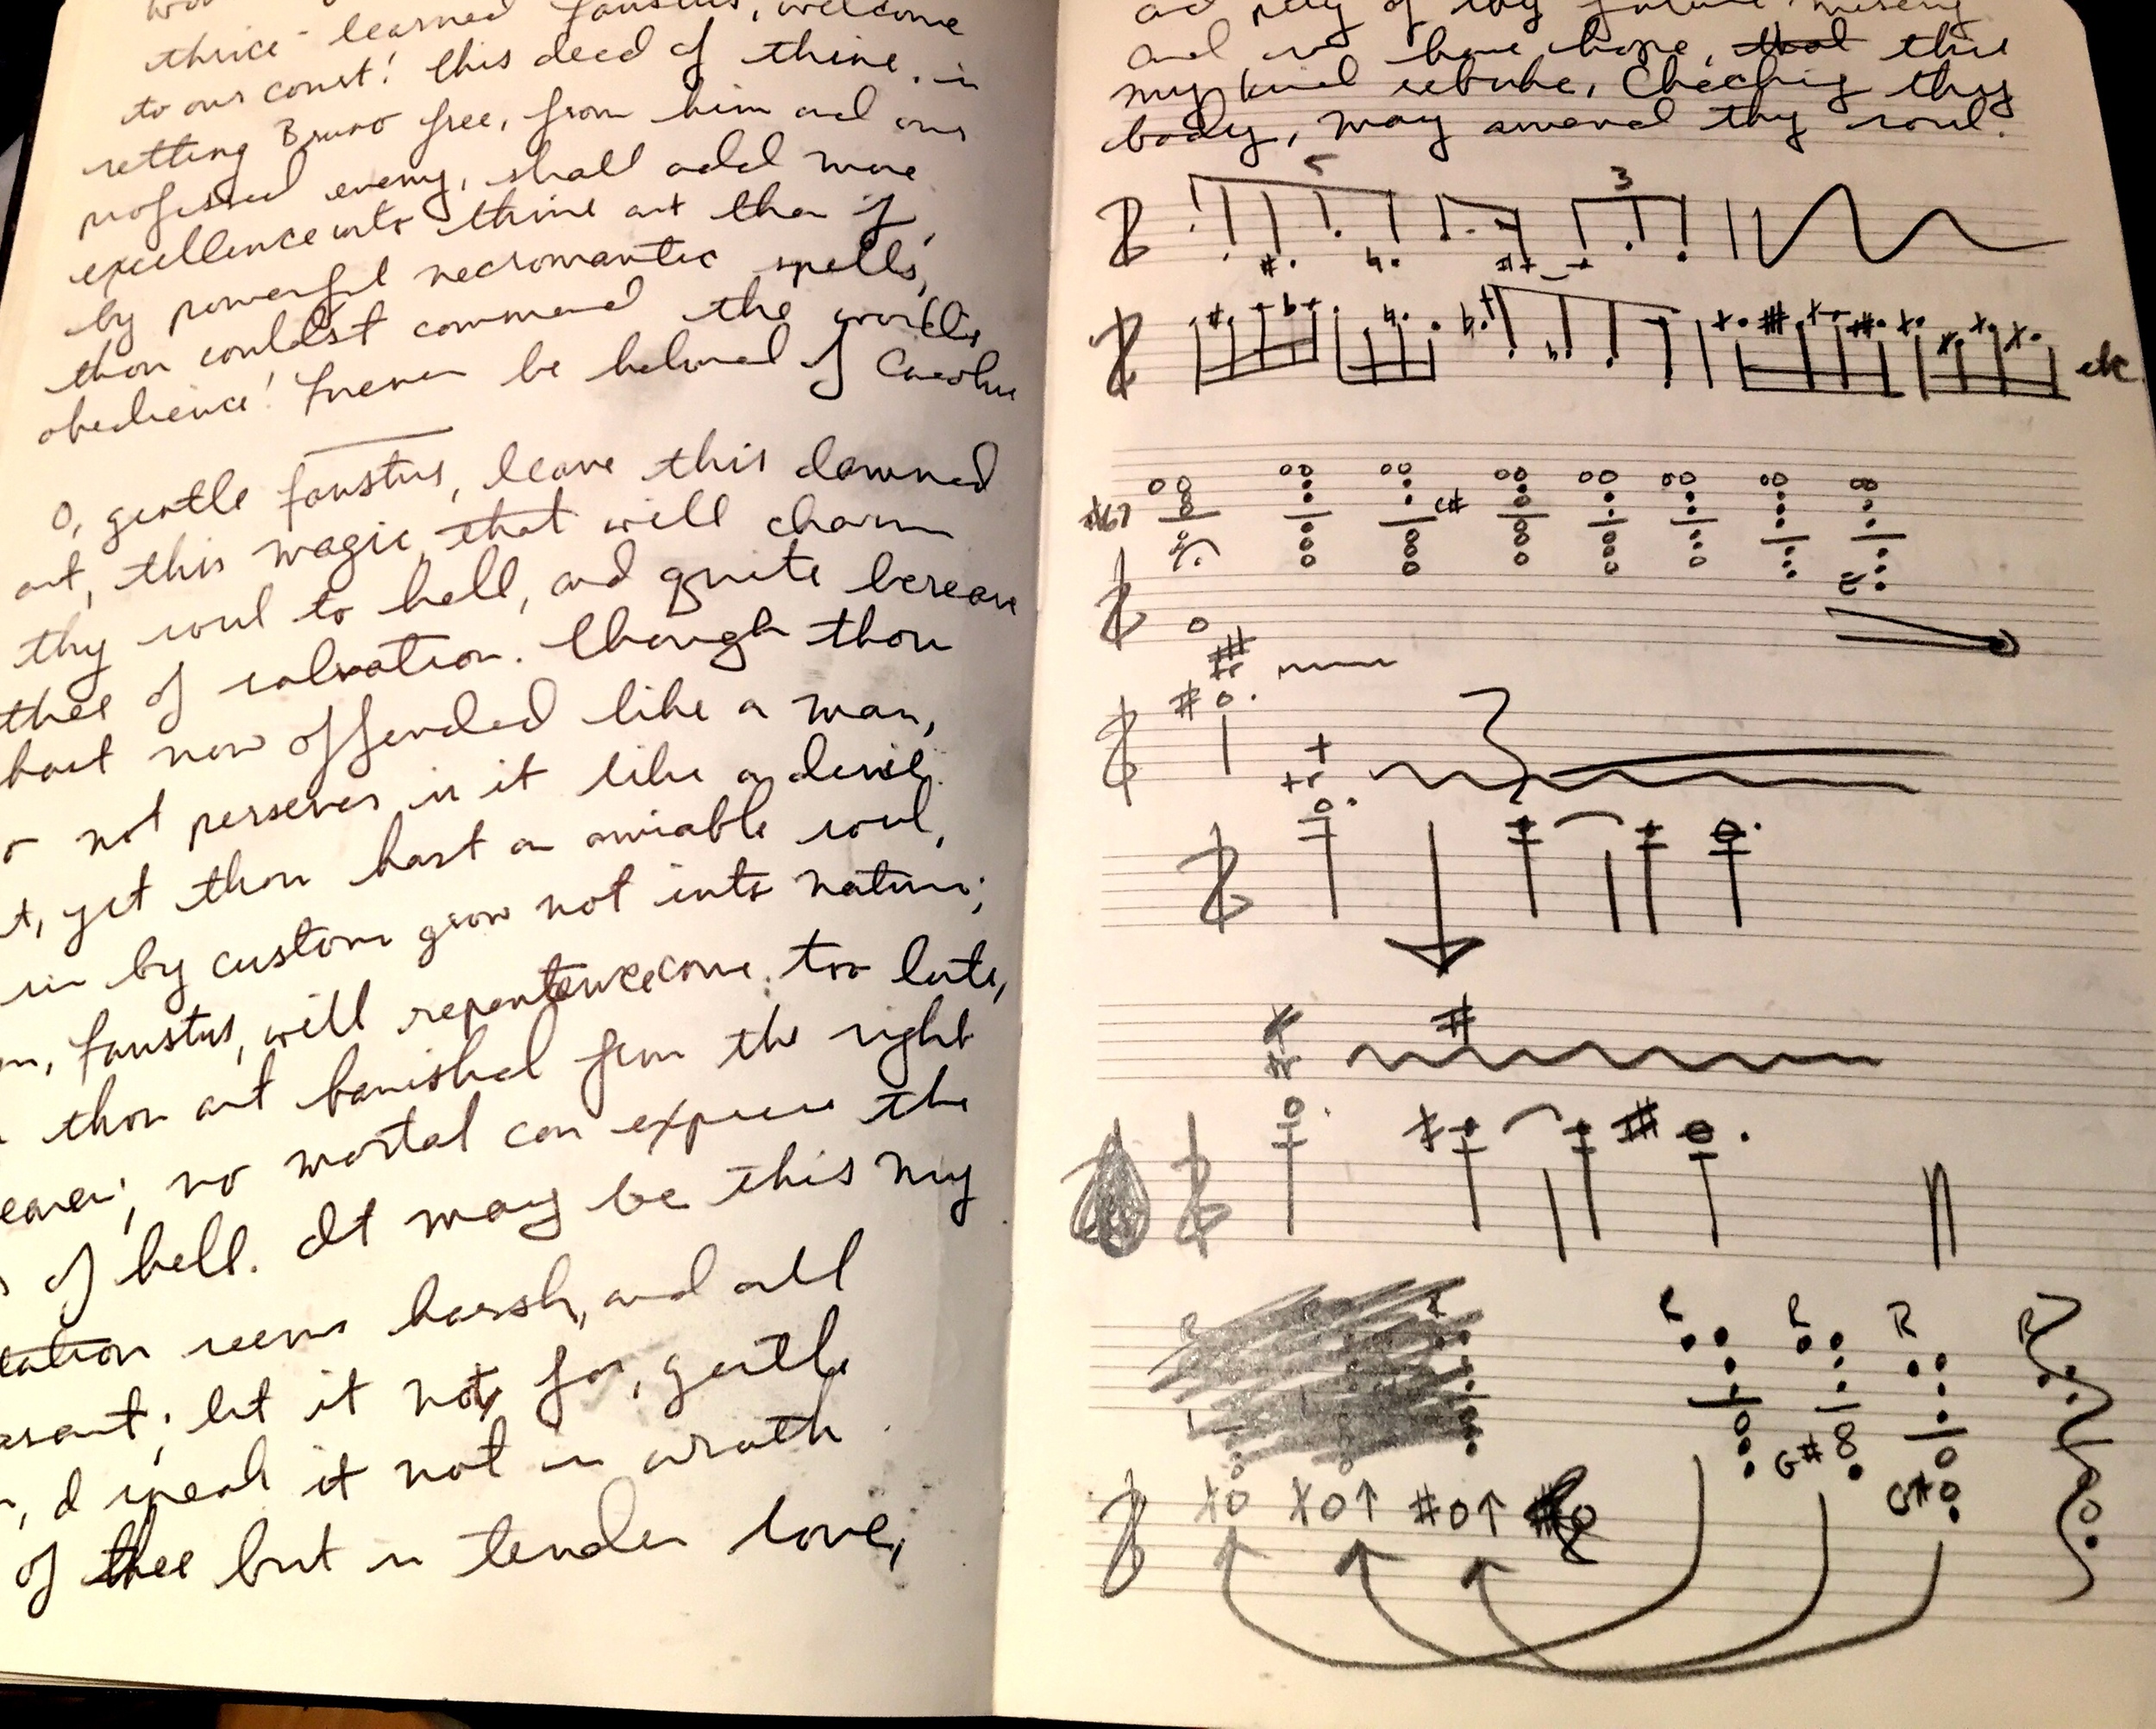 thrice-learned Faustus, welcome
to our court! this deed of thine, in
setting Bruno free, from him and our
professed enemy, shall add more
excellence unto thine art than if,
by powerful necromantic spells,
thou couldst command the world's
obedience! forever be beloved of
O, gentle faustus, leave this damned
art, this magic, that will charm
thy soul to hell, and quite bereave
thee of salvation. though thou
hast now offended like a man,
not persever in it like a devil.
yet thou hast an amiable soul,
sin by custom grow not into nature;
faustus, will repentence come too late,
thou art banished from the sight
no mortal can express the
of hell. It may be this my
tation seems harsh, and all
let it not for, gentle
I speak it not in wrath
of thee but in tender love,
pity of thy future misery
and so have hope, that this
my kind rebuke, Checking thy
body, may amend thy soul.
5
3
etc
C#
tr
tr
tr
R
R
R
R
G#
G#